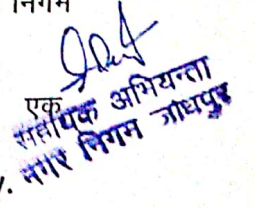 निगम
एक
सहायक अभियन्ता
नगर निगम जोधपुर